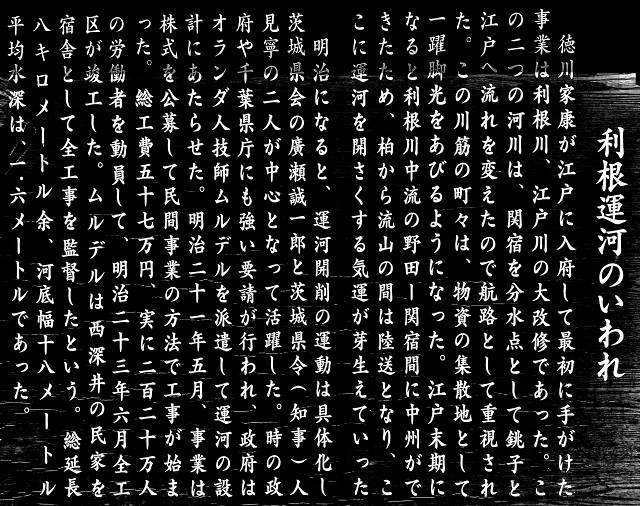 利根運河のいわれ
徳川家康が江戸に入府して最初に手がけた
事業は利根川、江戸川の大改修であった。こ
の二つの河川は、関宿を分水点として銚子と
江戸へ流れを変えたので航路として重視され
た。この川筋の町々は、物資の集散地として
一躍脚光をあびるようになった。江戸末期に
なると利根川中流の野田ー関宿間に中州がで
きたため、柏から流山の間は陸送となり、こ
こに運河を開さくする気運が芽生えていった
明治になると、運河開削の運動は具体化し
茨城県会の廣瀬誠一郎と茨城県令(知事)人
見寧の二人が中心となって活躍した。時の政
府や千葉県庁にも強い要請が行われ、政府は
オランダ人技師ムルデルを派遣して運河の設
計にあたらせた。明治二十一年五月、事業は
株式を公募して民間事業の方法で工事が始ま
った。総工費五十七万円、実に二百二十万人
の労働者を動員して、明治二十三年六月全工
区が竣工した。ムルデルは西深井の民家を
宿舎として全工事を監督したという。総延長
八キロメートル余、河底幅十八メートル
平均水深は一・六メートルであった。